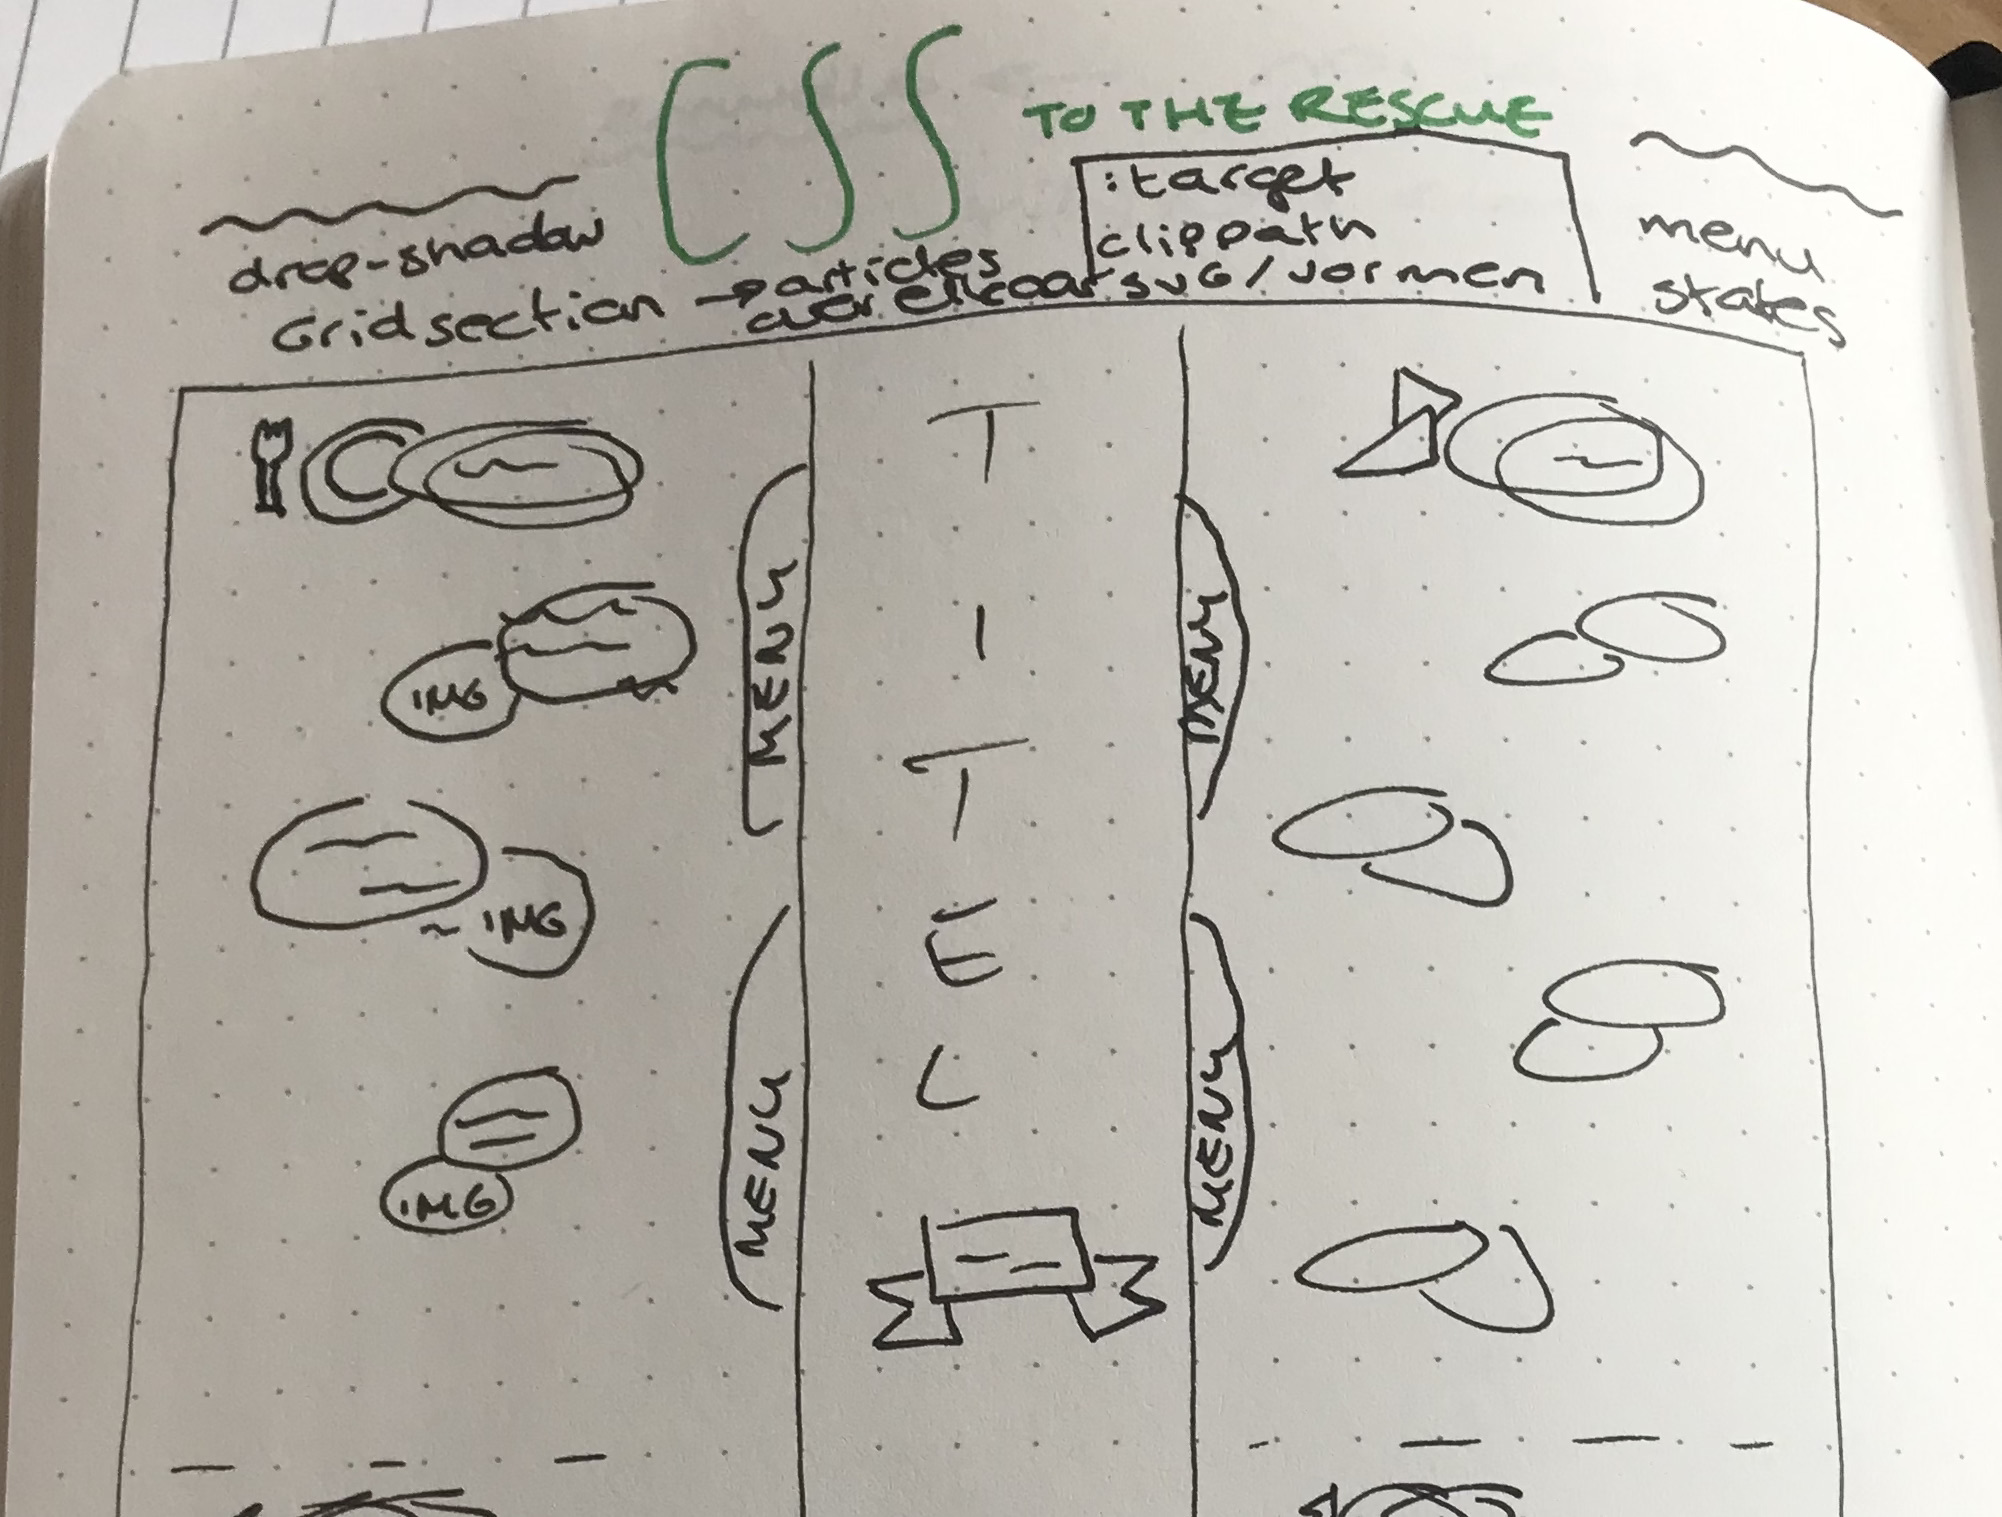 CSS
TO THE RESCUE
drop-shadow
Gridsection → particles
over elkaar
:target
clippath
SVG/vormen
menu
states
MENU
MENU
IMG
IMG
IMG
T
I
T
E
L
MENU
MENU